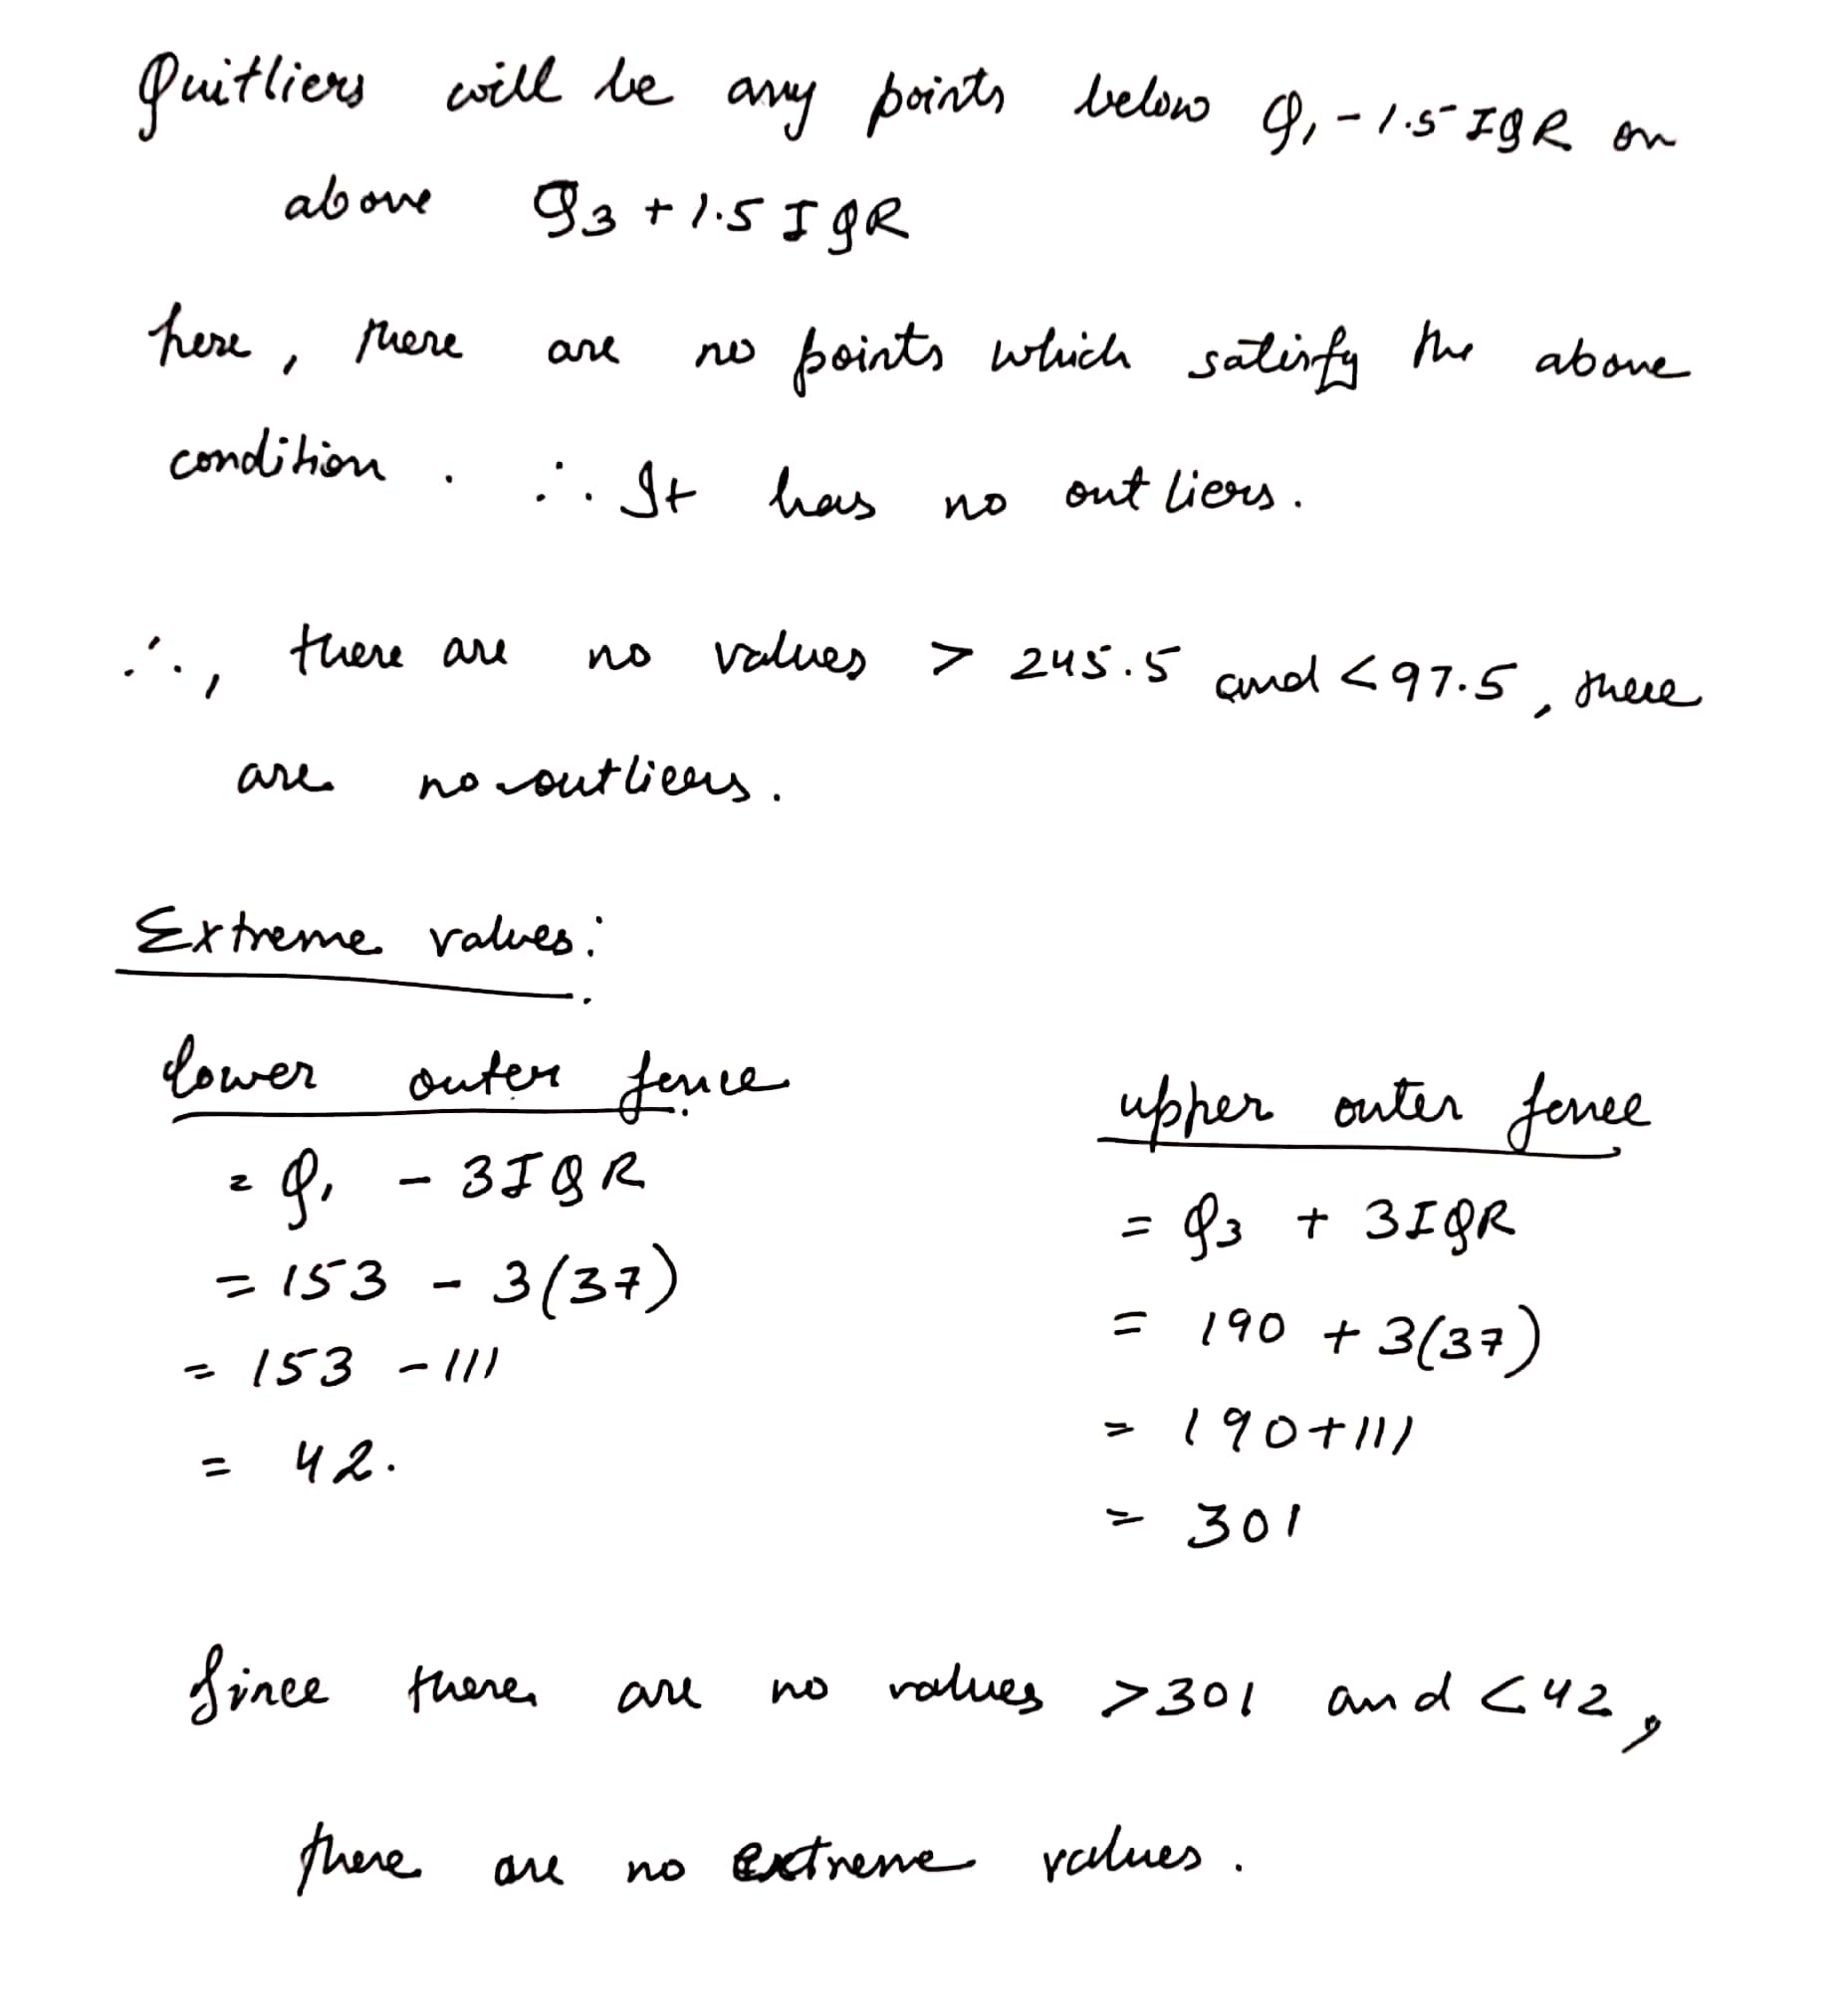 Quitliers will be any points below Q1 - 1.5 IQR or
above Q3 + 1.5 IQR
here, there are no points which satisfy the above
condition. ∴ It has no outliers.
∴, there are no values > 245.5 and < 97.5, there
are no outliers.
Extreme values:
lower outer fence
= Q1 - 3IQR
= 153 - 3(37)
= 153 - 111
= 42.
upper outer fence
= Q3 + 3IQR
= 190 + 3(37)
= 190+111
= 301
Since there are no values >301 and <42,
there are no extreme values.